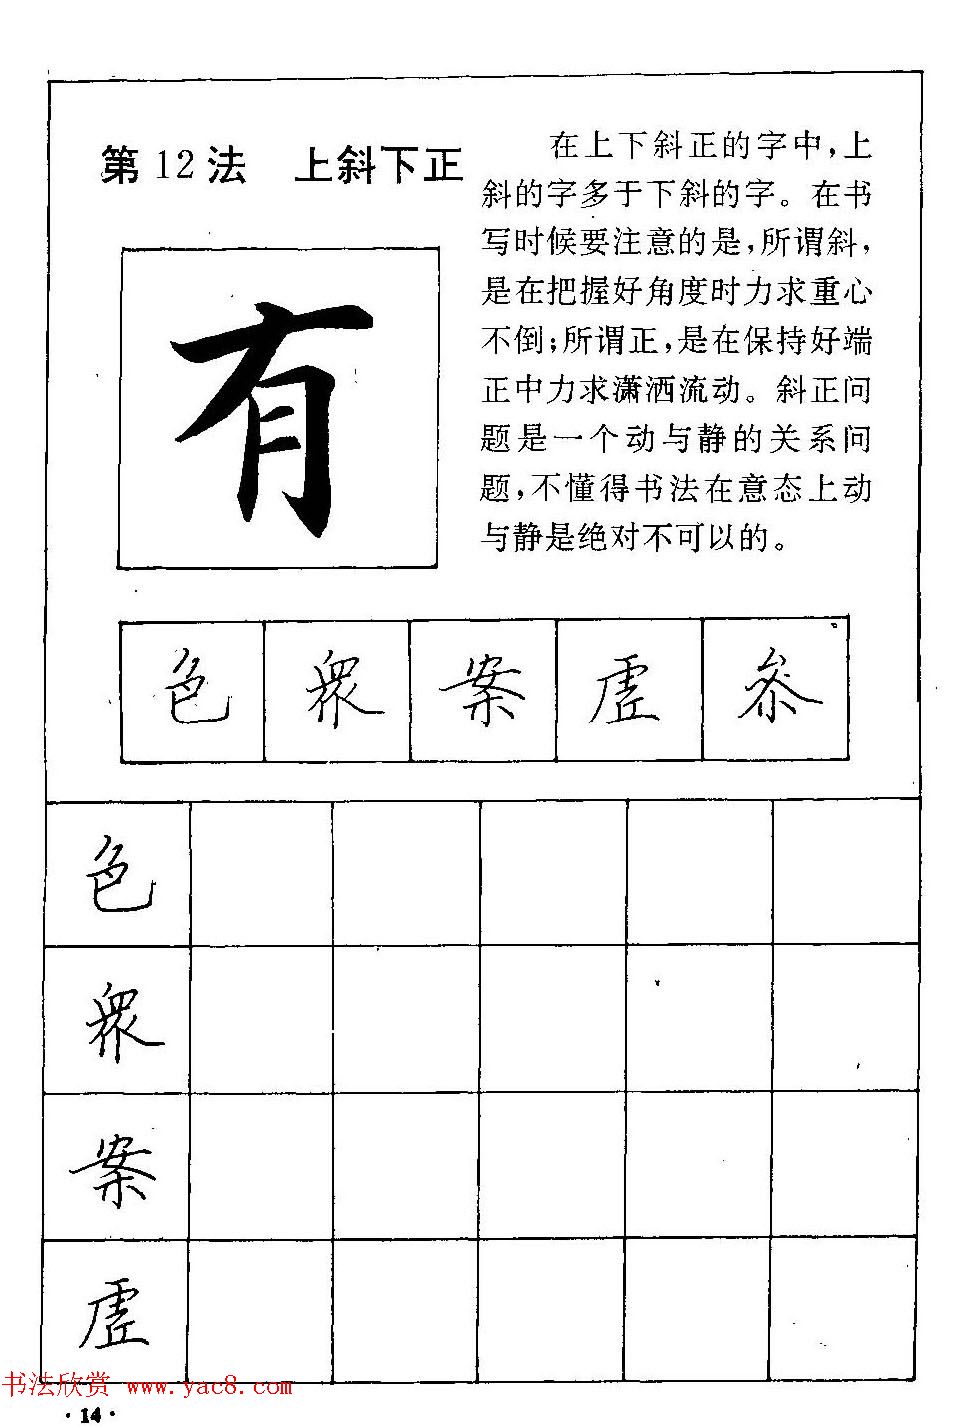 第12法 上斜下正
在上下斜正的字中,上
斜的字多于下斜的字。在书
写时候要注意的是,所谓斜,
是在把握好角度时力求重心
不倒;所谓正,是在保持好端
正中力求潇洒流动。斜正问
题是一个动与静的关系问
题,不懂得书法在意态上动
与静是绝对不可以的。
有
色 眾 案 虚 参
色
眾
案
虚
书法欣赏 www.yac8.com
·14·